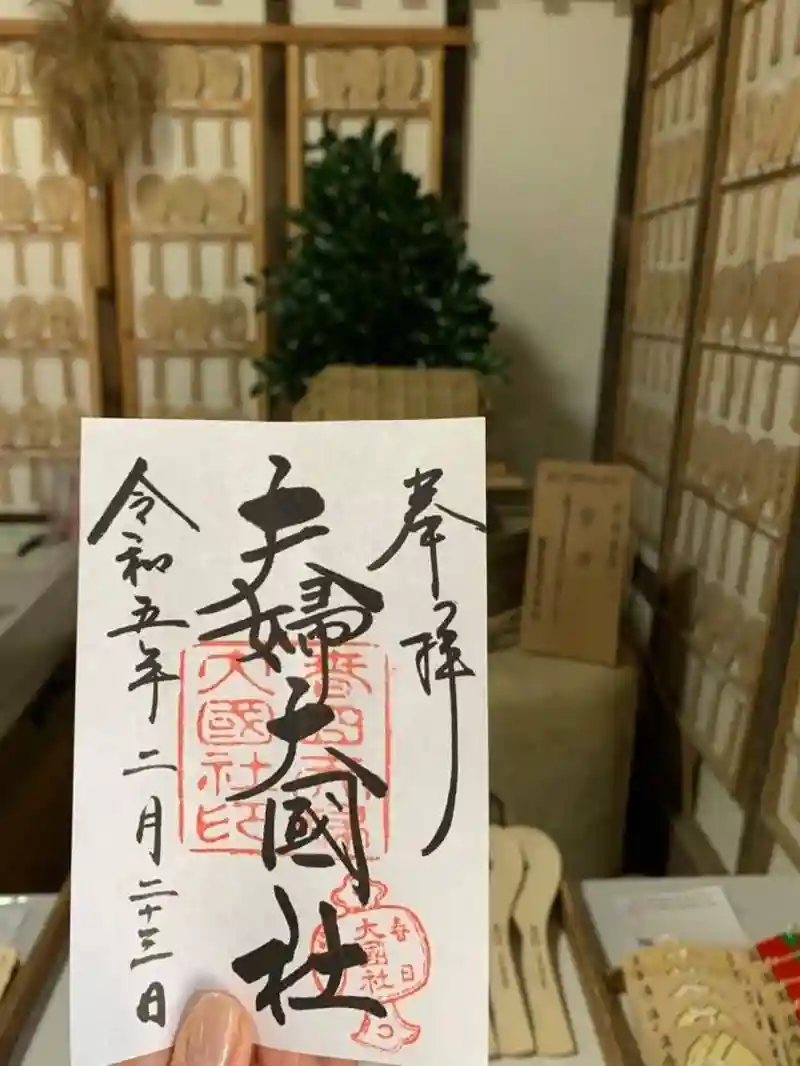 奉拝
夫婦大國社
令和五年二月二十三日
春日夫婦
大國社印
春日
大國社